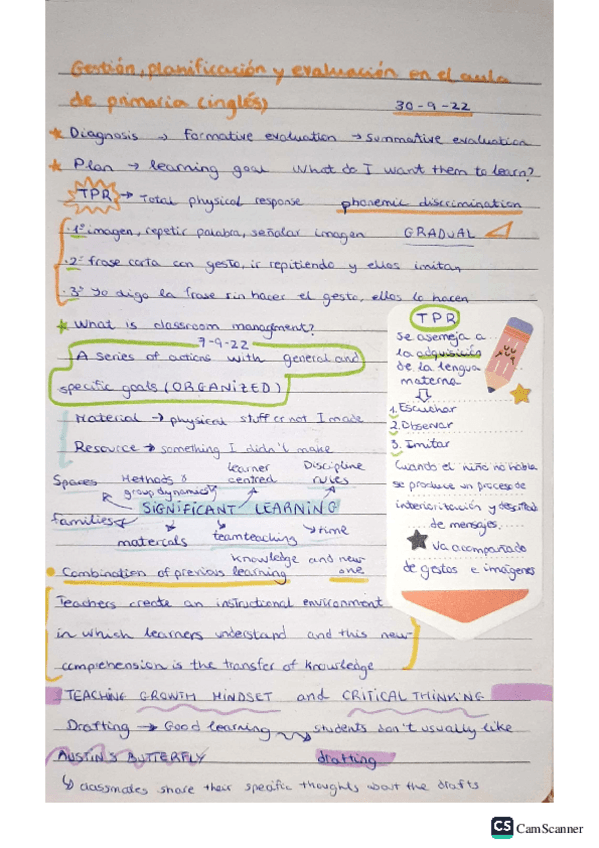 Gestión, planificación y evaluación en el aula
de primaria (inglés)
30-9-22
Diagnosis → Formative evaluation → Summative evaluation
Plan → learning goal What do I want them to learn?
TPR → Total physical response phonemic discrimination
1º imagen, repetir palabra, señalar imagen GRADUAL
2º frase corta con gesto, ir repitiendo y ellos imitan
3º Yo digo la frase sin hacer el gesto, ellos lo hacen
What is classroom management?
7-9-22
A series of actions with general and
specific goals (ORGANIZED)
Material → physical stuff or not I made
Resource → something I didn't make
Spaces Methods & group dynamics learner centred Discipline rules
SIGNIFICANT LEARNING
families
materials teamteaching time
Combination of previous learning knowledge and new one
Teachers create an instructional environment
in which learners understand and this new
comprehension is the transfer of knowledge
TEACHING GROWTH MINDSET and CRITICAL THINKING
Drafting → Good learning students don't usually like
drafting
AUSTIN'S BUTTERFLY
↳ classmates share their specific thoughts about the drafts
TPR
Se asemeja a
la adquisición
de la lengua
materna
1. Escuchar
2. Observar
3. Imitar
Cuando el niño no habla
se produce un proceso de
interiorización y
de mensajes.
Va acompañado
de gestos e imágenes
CS CamScanner